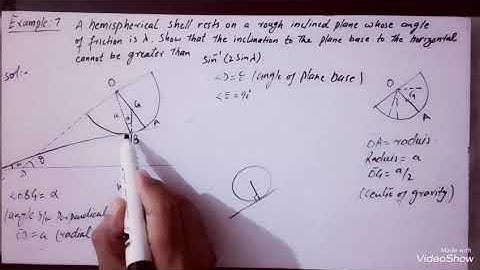 Example:7
A hemispherical shell rests on a rough inclined plane whose angle
of friction is λ. Show that the inclination to the plane base to the horizontal
cannot be greater than sin⁻¹(2sinλ)
sol:-
<D=E (angle of plane base)
O
G
A
a
B
O
G
A
OA=radius
Radius=a
OG=a/2
(centre of gravity)
<OBG=α
(angle b/w
OB=a (radial
Made with
VideoShow